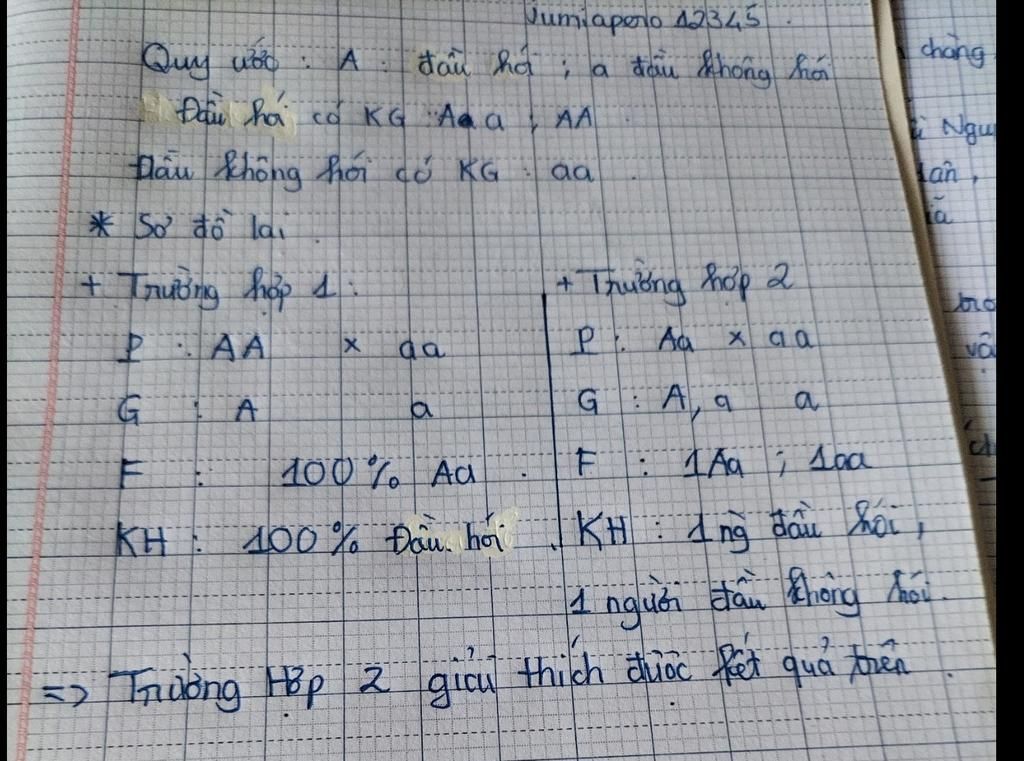 Jumiapero 12345.
Quy ước : A : đầu hói ; a đầu không hói
Đầu hói có KG : Aa ; AA.
Đầu không hói có KG : aa.
* Sơ đồ lai.
+ Trường hợp 1 :
P : AA x aa
G : A a
F : 100% Aa.
KH : 100% Đầu hói.
+ Trường hợp 2
P : Aa x aa
G : A, a a
F : 1Aa ; 1aa
KH : 1 ng đầu hói,
1 người đầu không hói.
=> Trường Hợp 2 giải thích được kết quả trên.
chàng
Ngu